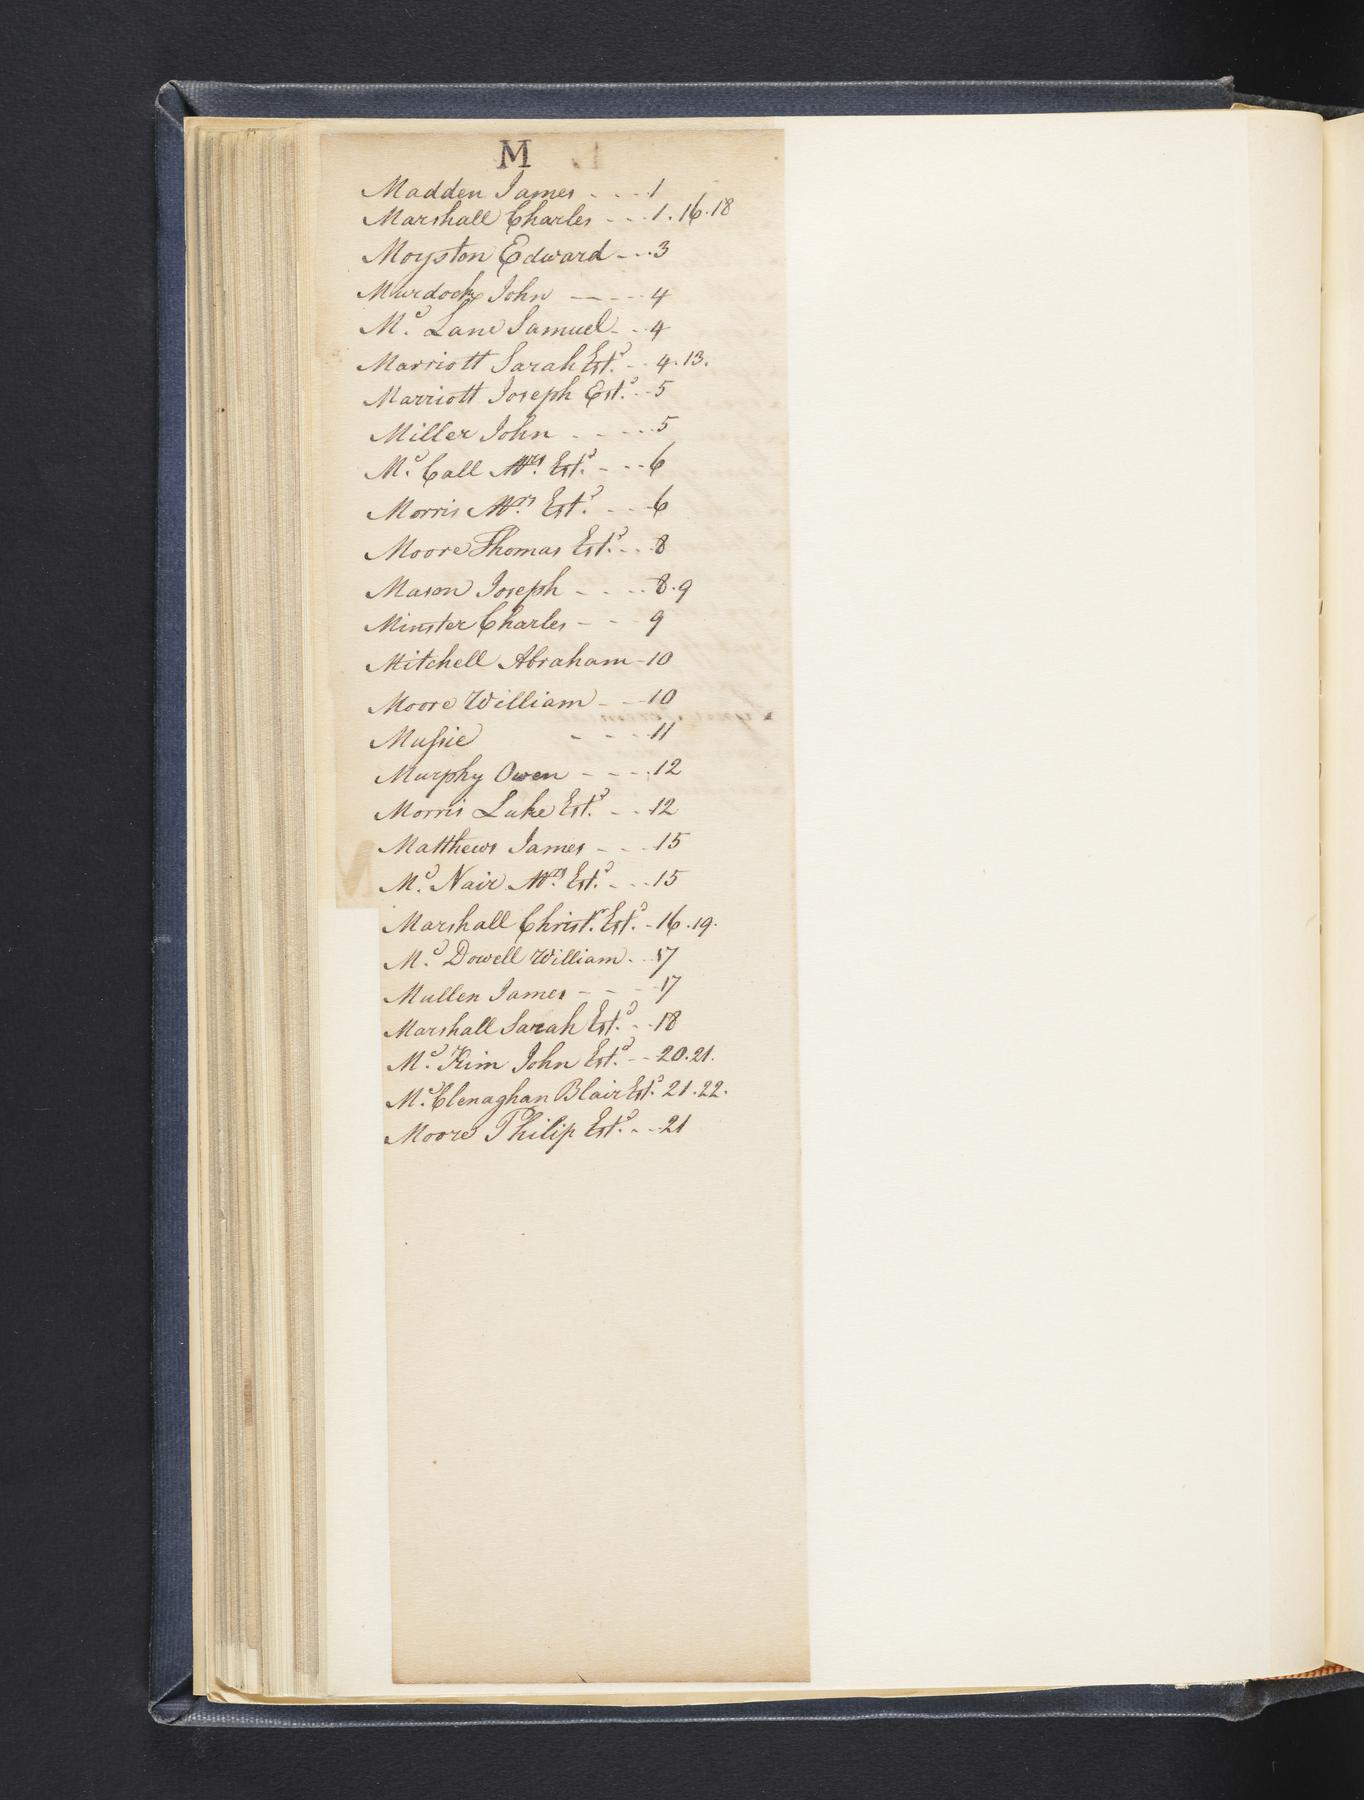 M
Madden James - - - 1
Marshall Charles - - - 1. 16. 18
Moyston Edward - - - 3
Murdock John - - - - 4
Mc. Lane Samuel - - - 4
Marriott Sarah Estd. - - 4. 13.
Marriott Joseph Estd. - - 5
Miller John - - - - 5
Mc. Call Mrs. Estd. - - - 6
Morris Mrs. Estd. - - - 6
Moore Thomas Estd. - - 8
Mason Joseph - - - - 8. 9
Minster Charles - - - 9
Mitchell Abraham - 10
Moore William - - - 10
Mussie - - - - 11
Murphy Owen - - - - 12
Morris Luke Estd. - - - 12
Matthews James - - - 15
Mc. Nair Mrs. Estd. - - - 15
Marshall Christr. Estd. - 16. 19.
Mc. Dowell William - - - 17
Mullen James - - - - 17
Marshall Sarah Estd. - - 18
Mc. Kim John Estd. - - 20. 21.
Mc. Clenaghan Blair Estd. 21. 22.
Moore Philip Estd. - - - 21